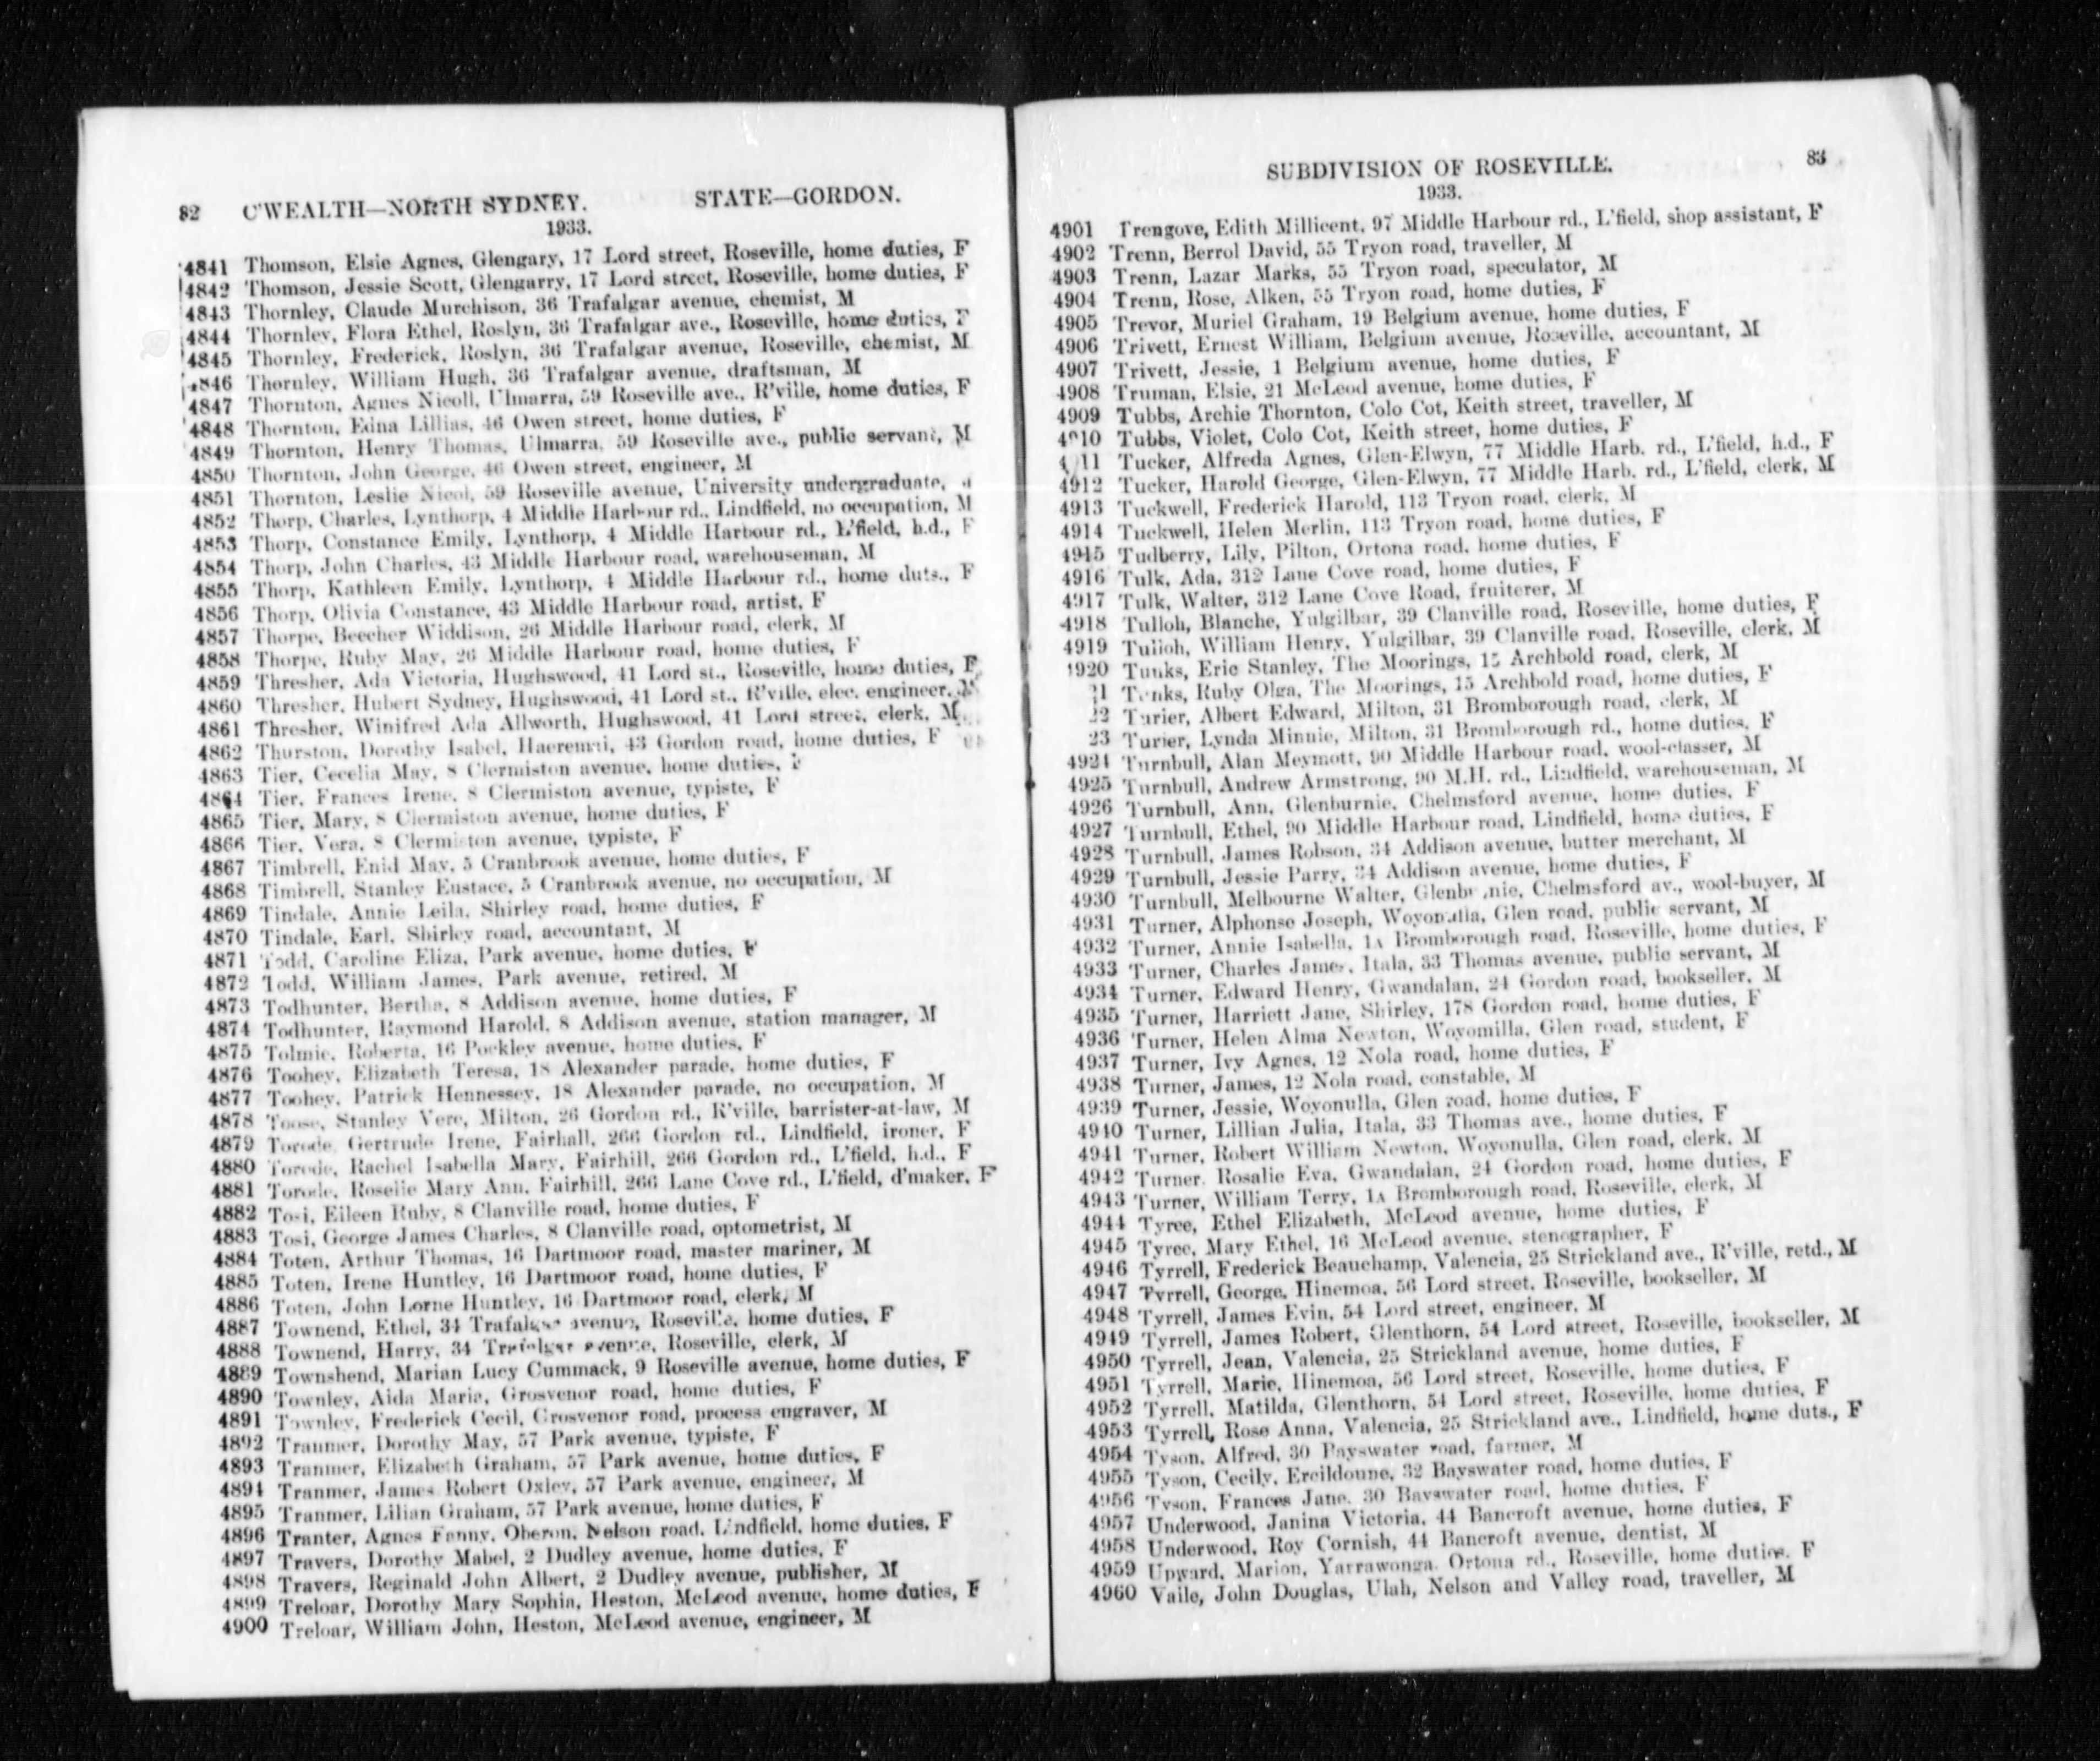 82 C'WEALTH—NORTH SYDNEY. STATE—GORDON.
1933.
4841 Thomson, Elsie Agnes, Glengary, 17 Lord street, Roseville, home duties, F
4842 Thomson, Jessie Scott, Glengarry, 17 Lord street, Roseville, home duties, F
4843 Thornley, Claude Murchison, 36 Trafalgar avenue, chemist, M
4844 Thornley, Flora Ethel, Roslyn, 36 Trafalgar ave., Roseville, home duties, F
4845 Thornley, Frederick, Roslyn, 36 Trafalgar avenue, Roseville, chemist, M
4846 Thornley, William Hugh, 36 Trafalgar avenue, draftsman, M
4847 Thornton, Agnes Nicoll, Ulmarra, 59 Roseville ave., R'ville, home duties, F
4848 Thornton, Edna Lillias, 46 Owen street, home duties, F
4849 Thornton, Henry Thomas, Ulmarra, 59 Roseville ave., public servant, M
4850 Thornton, John George, 46 Owen street, engineer, M
4851 Thornton, Leslie Nicol, 59 Roseville avenue, University undergraduate,
4852 Thorp, Charles, Lynthorp, 4 Middle Harbour rd., Lindfield, no occupation, M
4853 Thorp, Constance Emily, Lynthorp, 4 Middle Harbour rd., L'field, h.d., F
4854 Thorp, John Charles, 43 Middle Harbour road, warehouseman, M
4855 Thorp, Kathleen Emily, Lynthorp, 4 Middle Harbour rd., home duts., F
4856 Thorp, Olivia Constance, 43 Middle Harbour road, artist, F
4857 Thorpe, Beecher Widdison, 26 Middle Harbour road, clerk, M
4858 Thorpe, Ruby May, 26 Middle Harbour road, home duties, F
4859 Thresher, Ada Victoria, Hughswood, 41 Lord st., Roseville, home duties, F
4860 Thresher, Hubert Sydney, Hughswood, 41 Lord st., R'ville, elec. engineer, M
4861 Thresher, Winifred Ada Allworth, Hughswood, 41 Lord street, clerk, M
4862 Thurston, Dorothy Isabel, Haeremai, 43 Gordon road, home duties, F
4863 Tier, Cecelia May, 8 Clermiston avenue, home duties, F
4864 Tier, Frances Irene, 8 Clermiston avenue, typiste, F
4865 Tier, Mary, 8 Clermiston avenue, home duties, F
4866 Tier, Vera, 8 Clermiston avenue, typiste, F
4867 Timbrell, Enid May, 5 Cranbrook avenue, home duties, F
4868 Timbrell, Stanley Eustace, 5 Cranbrook avenue, no occupation, M
4869 Tindale, Annie Leila, Shirley road, home duties, F
4870 Tindale, Earl, Shirley road, accountant, M
4871 Todd, Caroline Eliza, Park avenue, home duties, F
4872 Todd, William James, Park avenue, retired, M
4873 Todhunter, Bertha, 8 Addison avenue, home duties, F
4874 Todhunter, Raymond Harold, 8 Addison avenue, station manager, M
4875 Tolmie, Roberta, 16 Pockley avenue, home duties, F
4876 Toohey, Elizabeth Teresa, 18 Alexander parade, home duties, F
4877 Toohey, Patrick Hennessey, 18 Alexander parade, no occupation, M
4878 Toose, Stanley Vere, Milton, 26 Gordon rd., R'ville, barrister-at-law, M
4879 Torode, Gertrude Irene, Fairhall, 266 Gordon rd., Lindfield, ironer, F
4880 Torode, Rachel Isabella Mary, Fairhill, 266 Gordon rd., L'field, h.d., F
4881 Torode, Roselie Mary Ann, Fairhill, 266 Lane Cove rd., L'field, d'maker, F
4882 Tosi, Eileen Ruby, 8 Clanville road, home duties, F
4883 Tosi, George James Charles, 8 Clanville road, optometrist, M
4884 Toten, Arthur Thomas, 16 Dartmoor road, master mariner, M
4885 Toten, Irene Huntley, 16 Dartmoor road, home duties, F
4886 Toten, John Lorne Huntley, 16 Dartmoor road, clerk, M
4887 Townend, Ethel, 34 Trafalgar avenue, Roseville, home duties, F
4888 Townend, Harry, 34 Trafalgar avenue, Roseville, clerk, M
4889 Townshend, Marian Lucy Cummack, 9 Roseville avenue, home duties, F
4890 Townley, Aida Marie, Grosvenor road, home duties, F
4891 Townley, Frederick Cecil, Grosvenor road, process engraver, M
4892 Tranmer, Dorothy May, 57 Park avenue, typiste, F
4893 Tranmer, Elizabeth Graham, 57 Park avenue, home duties, F
4894 Tranmer, James Robert Oxley, 57 Park avenue, engineer, M
4895 Tranmer, Lilian Graham, 57 Park avenue, home duties, F
4896 Tranter, Agnes Fanny, Oberon, Nelson road, Lindfield, home duties, F
4897 Travers, Dorothy Mabel, 2 Dudley avenue, home duties, F
4898 Travers, Reginald John Albert, 2 Dudley avenue, publisher, M
4899 Treloar, Dorothy Mary Sophia, Heston, McLeod avenue, home duties, F
4900 Treloar, William John, Heston, McLeod avenue, engineer, M
SUBDIVISION OF ROSEVILLE. 83
1933.
4901 Trengove, Edith Millicent, 97 Middle Harbour rd., L'field, shop assistant, F
4902 Trenn, Berrol David, 55 Tryon road, traveller, M
4903 Trenn, Lazar Marks, 55 Tryon road, speculator, M
4904 Trenn, Rose, Alken, 55 Tryon road, home duties, F
4905 Trevor, Muriel Graham, 19 Belgium avenue, home duties, F
4906 Trivett, Ernest William, Belgium avenue, Roseville, accountant, M
4907 Trivett, Jessie, 1 Belgium avenue, home duties, F
4908 Truman, Elsie, 21 McLeod avenue, home duties, F
4909 Tubbs, Archie Thornton, Colo Cot, Keith street, traveller, M
4910 Tubbs, Violet, Colo Cot, Keith street, home duties, F
4 11 Tucker, Alfreda Agnes, Glen-Elwyn, 77 Middle Harb. rd., L'field, h.d., F
4912 Tucker, Harold George, Glen-Elwyn, 77 Middle Harb. rd., L'field, clerk, M
4913 Tuckwell, Frederick Harold, 113 Tryon road, clerk, M
4914 Tuckwell, Helen Merlin, 113 Tryon road, home duties, F
4915 Tudberry, Lily, Pilton, Ortona road, home duties, F
4916 Tulk, Ada, 312 Lane Cove road, home duties, F
4917 Tulk, Walter, 312 Lane Cove Road, fruiterer, M
4918 Tulloh, Blanche, Yulgilbar, 39 Clanville road, Roseville, home duties, F
4919 Tulloh, William Henry, Yulgilbar, 39 Clanville road, Roseville, clerk, M
4920 Tunks, Eric Stanley, The Moorings, 15 Archbold road, clerk, M
21 Tunks, Ruby Olga, The Moorings, 15 Archbold road, home duties, F
22 Turier, Albert Edward, Milton, 31 Bromborough road, clerk, M
23 Turier, Lynda Minnie, Milton, 31 Bromborough rd., home duties, F
4924 Turnbull, Alan Meymott, 90 Middle Harbour road, wool-classer, M
4925 Turnbull, Andrew Armstrong, 90 M.H. rd., Lindfield, warehouseman, M
4926 Turnbull, Ann, Glenburnie, Chelmsford avenue, home duties, F
4927 Turnbull, Ethel, 90 Middle Harbour road, Lindfield, home duties, F
4928 Turnbull, James Robson, 34 Addison avenue, butter merchant, M
4929 Turnbull, Jessie Parry, 34 Addison avenue, home duties, F
4930 Turnbull, Melbourne Walter, Glenburnie, Chelmsford av., wool-buyer, M
4931 Turner, Alphonse Joseph, Woyonulla, Glen road, public servant, M
4932 Turner, Annie Isabella, 1A Bromborough road, Roseville, home duties, F
4933 Turner, Charles James, Itala, 33 Thomas avenue, public servant, M
4934 Turner, Edward Henry, Gwandalan, 24 Gordon road, bookseller, M
4935 Turner, Harriett Jane, Shirley, 178 Gordon road, home duties, F
4936 Turner, Helen Alma Newton, Woyomilla, Glen road, student, F
4937 Turner, Ivy Agnes, 12 Nola road, home duties, F
4938 Turner, James, 12 Nola road, constable, M
4939 Turner, Jessie, Woyonulla, Glen road, home duties, F
4940 Turner, Lillian Julia, Itala, 33 Thomas ave., home duties, F
4941 Turner, Robert William Newton, Woyonulla, Glen road, clerk, M
4942 Turner, Rosalie Eva, Gwandalan, 24 Gordon road, home duties, F
4943 Turner, William Terry, 1A Bromborough road, Roseville, clerk, M
4944 Tyree, Ethel Elizabeth, McLeod avenue, home duties, F
4945 Tyree, Mary Ethel, 16 McLeod avenue, stenographer, F
4946 Tyrrell, Frederick Beauchamp, Valencia, 25 Strickland ave., R'ville, retd., M
4947 Tyrrell, George, Hinemoa, 56 Lord street, Roseville, bookseller, M
4948 Tyrrell, James Evin, 54 Lord street, engineer, M
4949 Tyrrell, James Robert, Glenthorn, 54 Lord street, Roseville, bookseller, M
4950 Tyrrell, Jean, Valencia, 25 Strickland avenue, home duties, F
4951 Tyrrell, Marie, Hinemoa, 56 Lord street, Roseville, home duties, F
4952 Tyrrell, Matilda, Glenthorn, 54 Lord street, Roseville, home duties, F
4953 Tyrrell, Rose Anna, Valencia, 25 Strickland ave., Lindfield, home duts., F
4954 Tyson, Alfred, 30 Bayswater road, farmer, M
4955 Tyson, Cecily, Ercildoune, 32 Bayswater road, home duties, F
4956 Tyson, Frances Jane, 30 Bayswater road, home duties, F
4957 Underwood, Janina Victoria, 44 Bancroft avenue, home duties, F
4958 Underwood, Roy Cornish, 44 Bancroft avenue, dentist, M
4959 Upward, Marion, Yarrawonga, Ortona rd., Roseville, home duties, F
4960 Vaile, John Douglas, Ulah, Nelson and Valley road, traveller, M